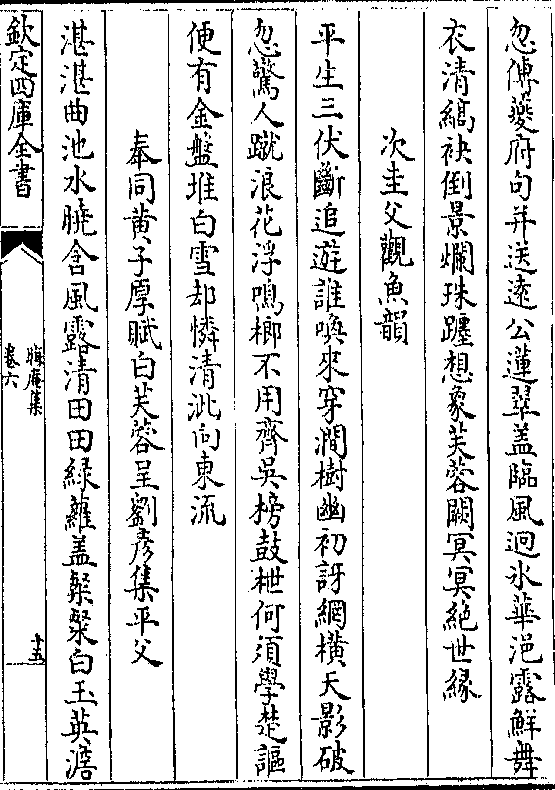 忽傳夔府句并送逺公蓮翠盖臨風迥氷華浥露鮮舞
衣清縞袂倒景爛珠躔想象芙蓉闕冥冥絶世縁
次圭父觀魚韻
平生三伏斷追遊誰喚來穿澗樹幽初訝網横天影破
忽驚人蹴浪花浮鳴榔不用齊吳榜鼓枻何須學楚謳
便有金盤堆白雪却憐清泚向東流
奉同黄子厚賦白芙蓉呈劉彦集平父
湛湛曲池水曉含風露清田田緑蘿盖粲粲白玉英澹
欽定四庫全書
晦庵集
卷六
十五